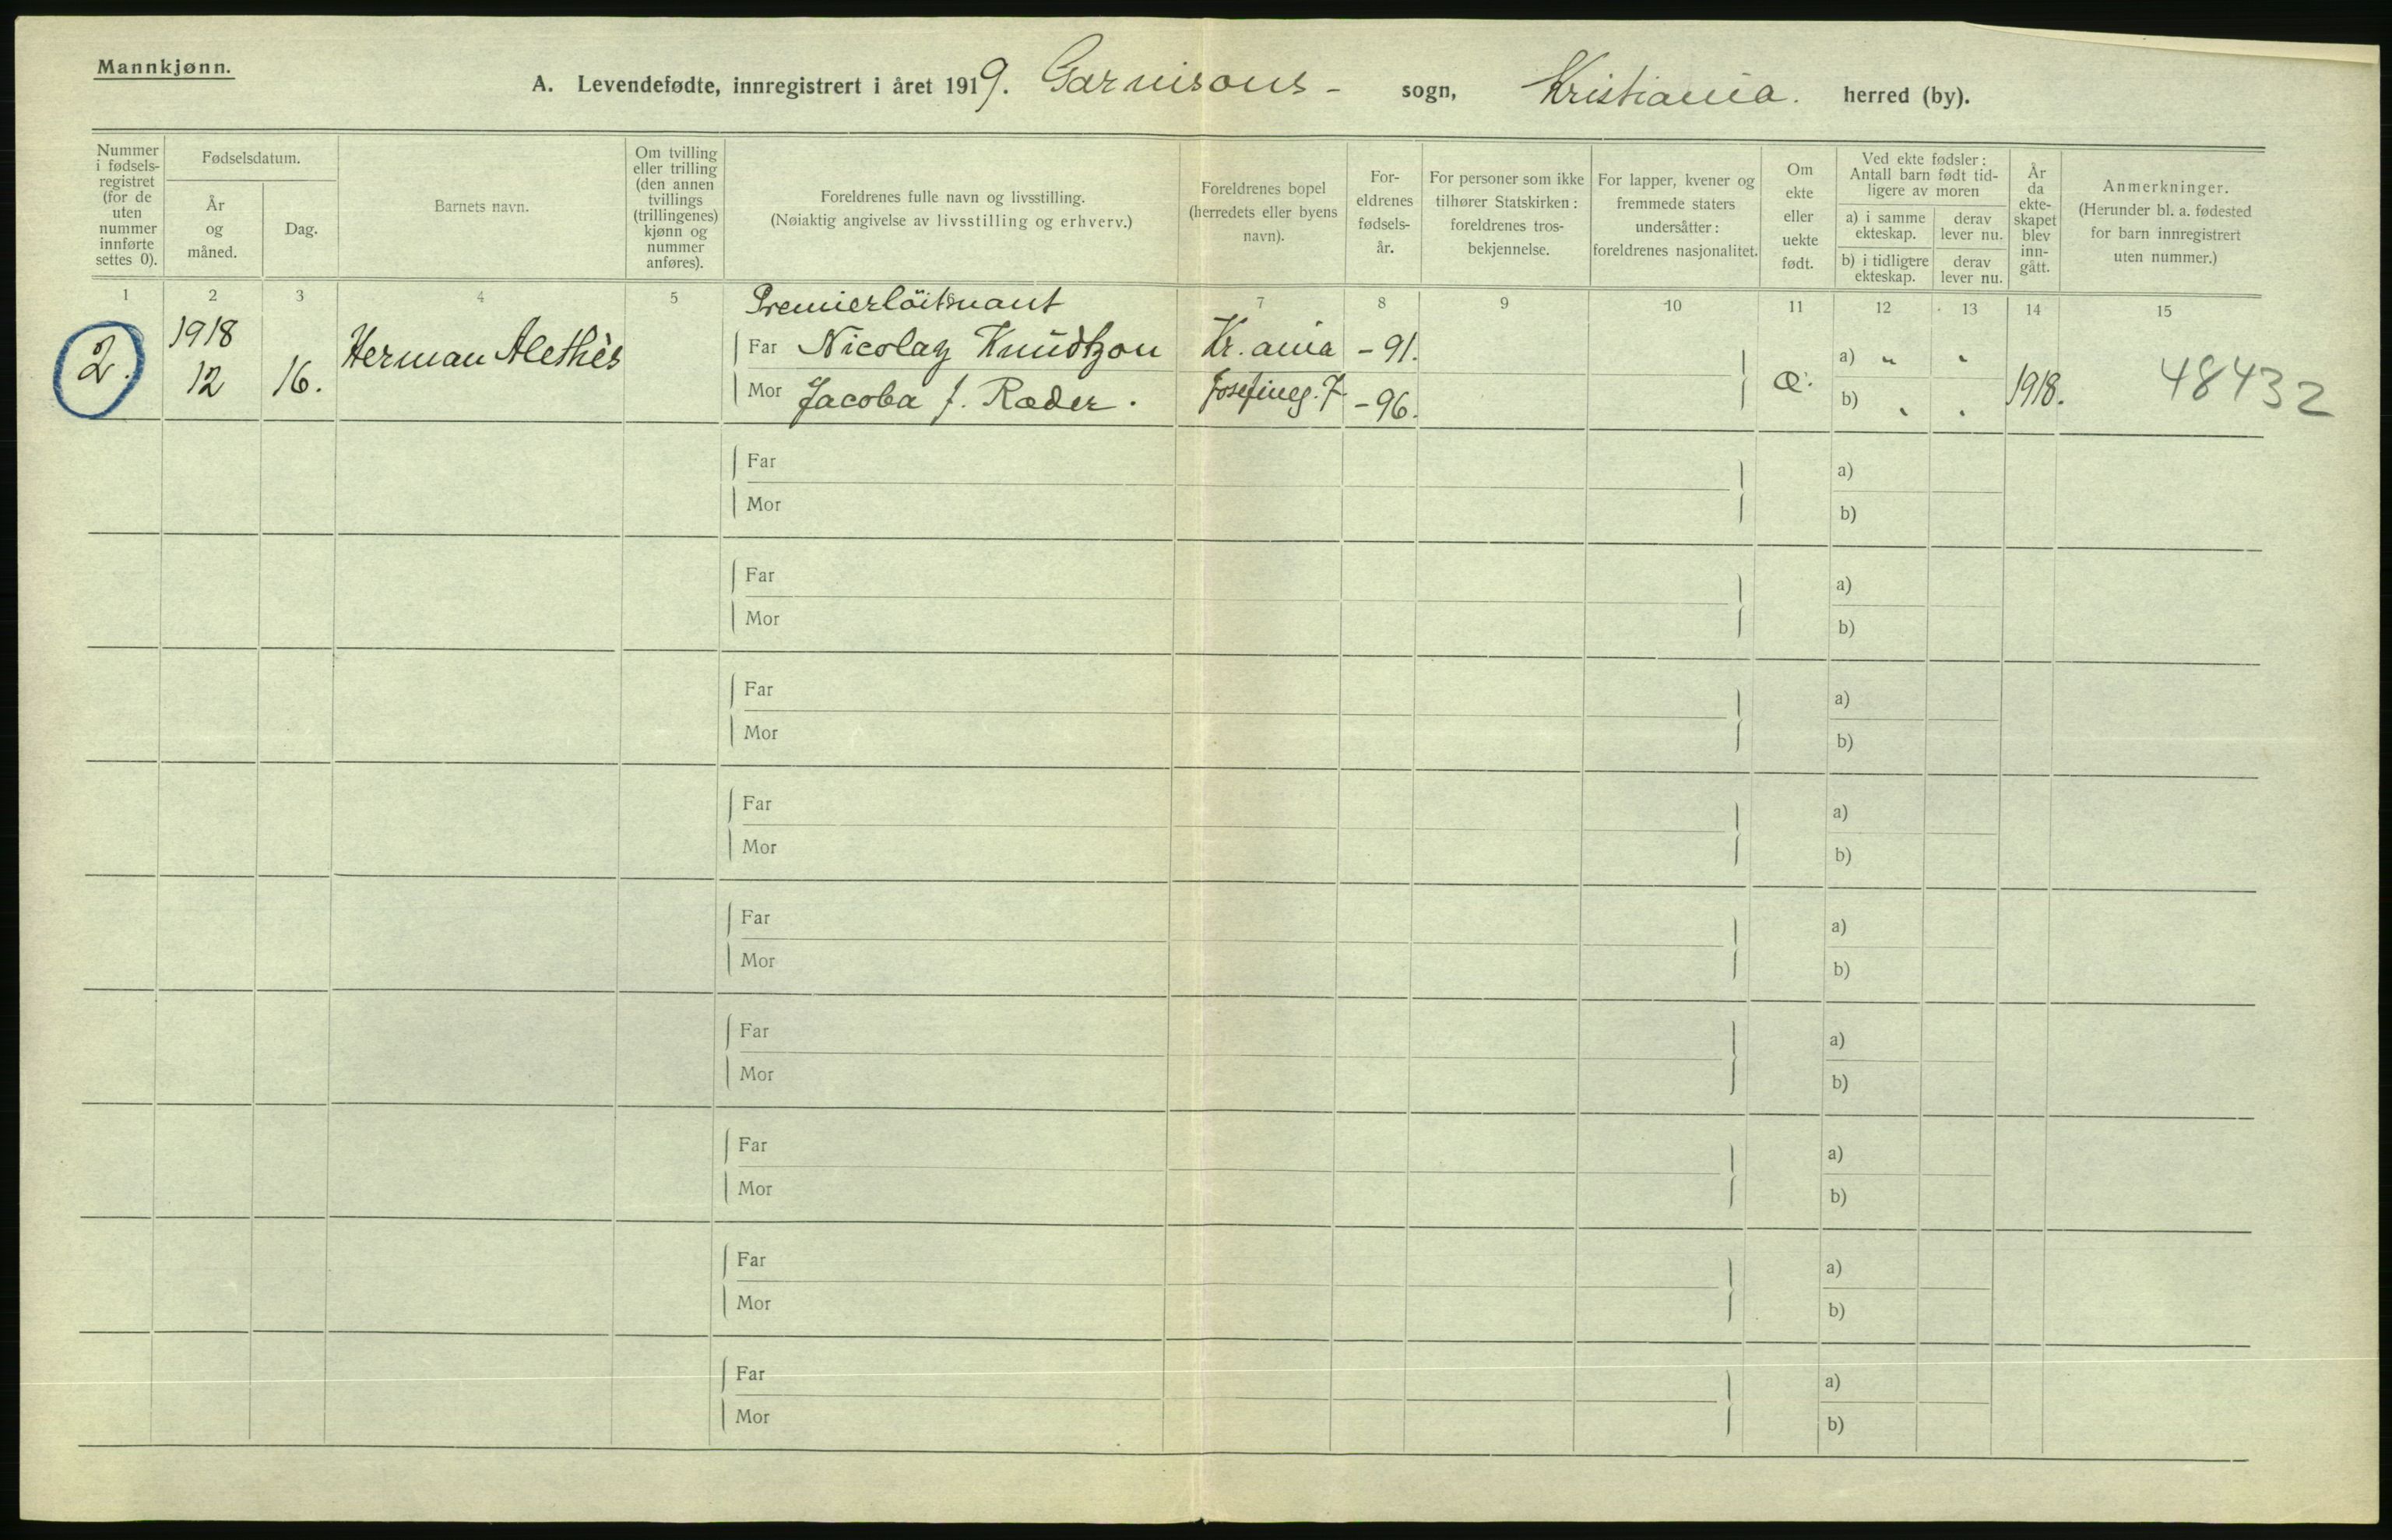 Mannkjønn.
A. Levendefødte, innregistrert i året 1919. Garnisons- sogn, Kristiania. herred (by).
Nummer i fødsels-registret (for de uten nummer innførte settes 0).
Fødselsdatum.
År og måned.
Dag.
Barnets navn.
Om tvilling eller trilling (den annen tvillings (trillingenes) kjønn og nummer anføres).
Foreldrenes fulle navn og livsstilling.
(Nøiaktig angivelse av livsstilling og erhverv.)
Foreldrenes bopel (herredets eller byens navn).
For-eldrenes fødsels-år.
For personer som ikke tilhører Statskirken: foreldrenes tros-bekjennelse.
For lapper, kvener og fremmede staters undersåtter: foreldrenes nasjonalitet.
Om ekte eller uekte født.
Ved ekte fødsler: Antall barn født tid-ligere av moren
a) i samme ekteskap.
derav lever nu.
b) i tidligere ekteskap.
derav lever nu.
År da ekte-skapet blev inn-gått.
Anmerkninger.
(Herunder bl. a. fødested for barn innregistrert uten nummer.)
1 2 3 4 5 7 8 9 10 11 12 13 14 15
Premierlöitnant
2. 1918 12 16. Herman Alethès
Far Nicolay Knüdtzon Kr.ania -91. a) " "
Mor Jacoba f. Ræder. Josefineg. 7 -96. Æ. b) " " 1918. 48432
Far a)
Mor b)
Far a)
Mor b)
Far a)
Mor b)
Far a)
Mor b)
Far a)
Mor b)
Far a)
Mor b)
Far a)
Mor b)
Far a)
Mor b)
Far a)
Mor b)